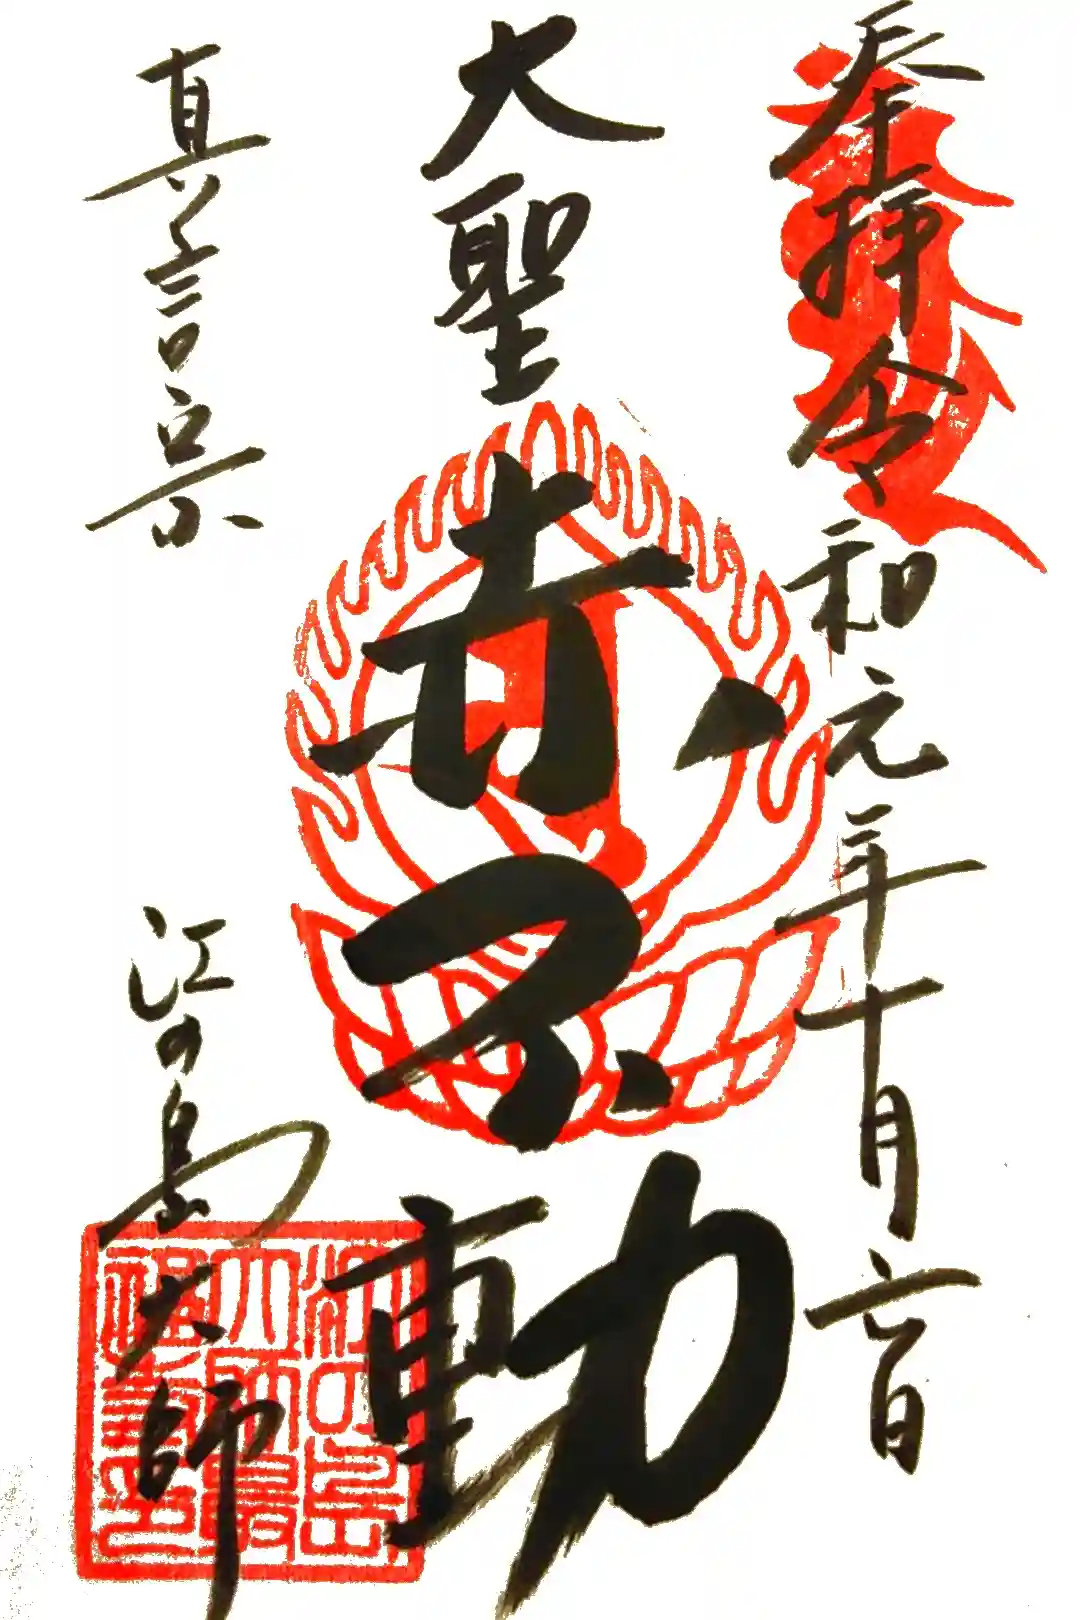 奉拝 令和元年十月六日
大聖
赤不動
真言宗
江の島大師
江の島
大師最
福寺印